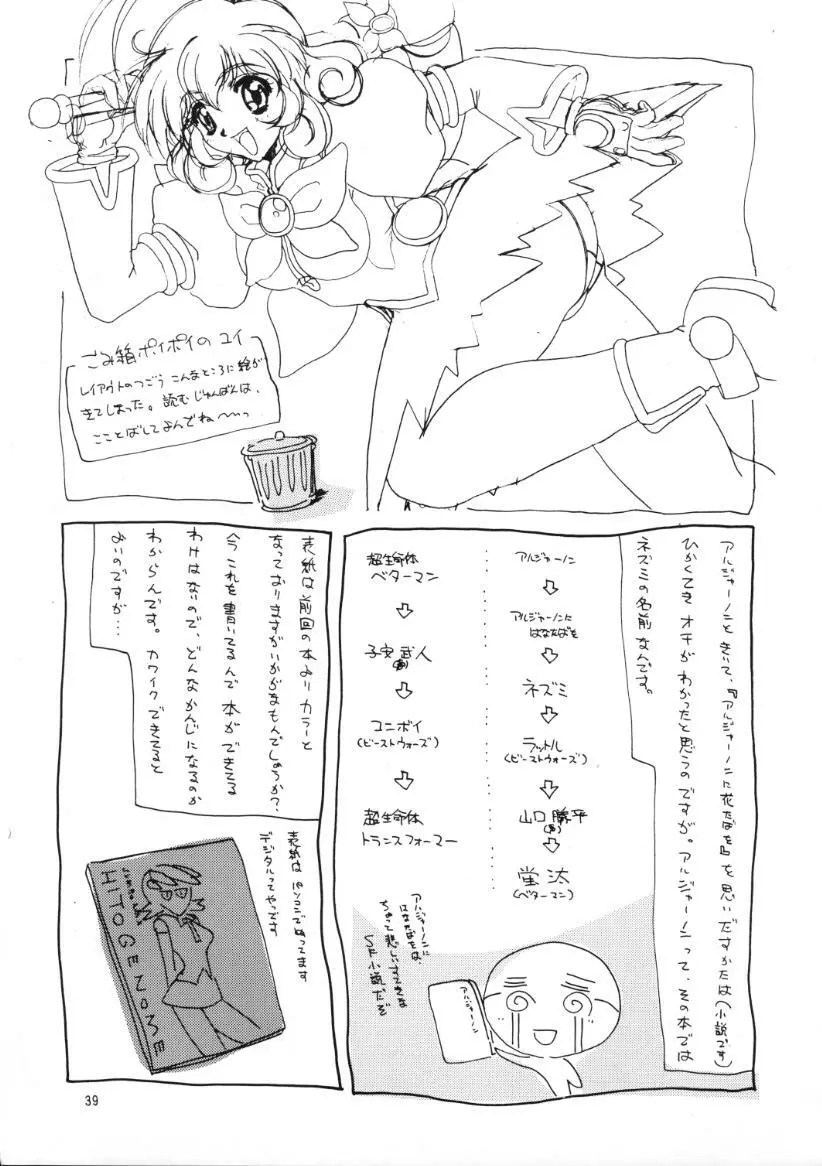 ごみ箱ポイポイのユイ
レイアウトのつごう こんなところに絵が
きてしまった。読むじゅんばんは、
ここととばしてよんでね〜っ
アルジャーノンときいて、『アルジャーノンに花たばを』を思いだすかたは(小説です)
ひかくてき オチが わかったと思うのですが。アルジャーノンって、その本では
ネズミの名前なんです。
アルジャーノン
⇩
アルジャーノンに
はなたばを
⇩
ネズミ
⇩
ラットル
(ビーストウォーズ)
⇩
山口 勝平
⇩
蛍汰
(ベターマン)
超生命体
ベターマン
⇩
子安 武人
⇩
コンボイ
(ビーストウォーズ)
⇩
超生命体
トランスフォーマー
アルジャーノンに
はなたばをは、
ちょっと悲しいすてきな
SF小説だぞ
アルジャーノン
表紙は前回の本よりカラーと
なっておりますがいかがなもんでしょうか?
今これを書いてるんで本ができてる
わけはないので、どんなかんじになるのか
わからんです。カワイクできてると
よいのですが…
表紙は パソコンでぬってます
デジタルってやつです
HITOGENOME
39